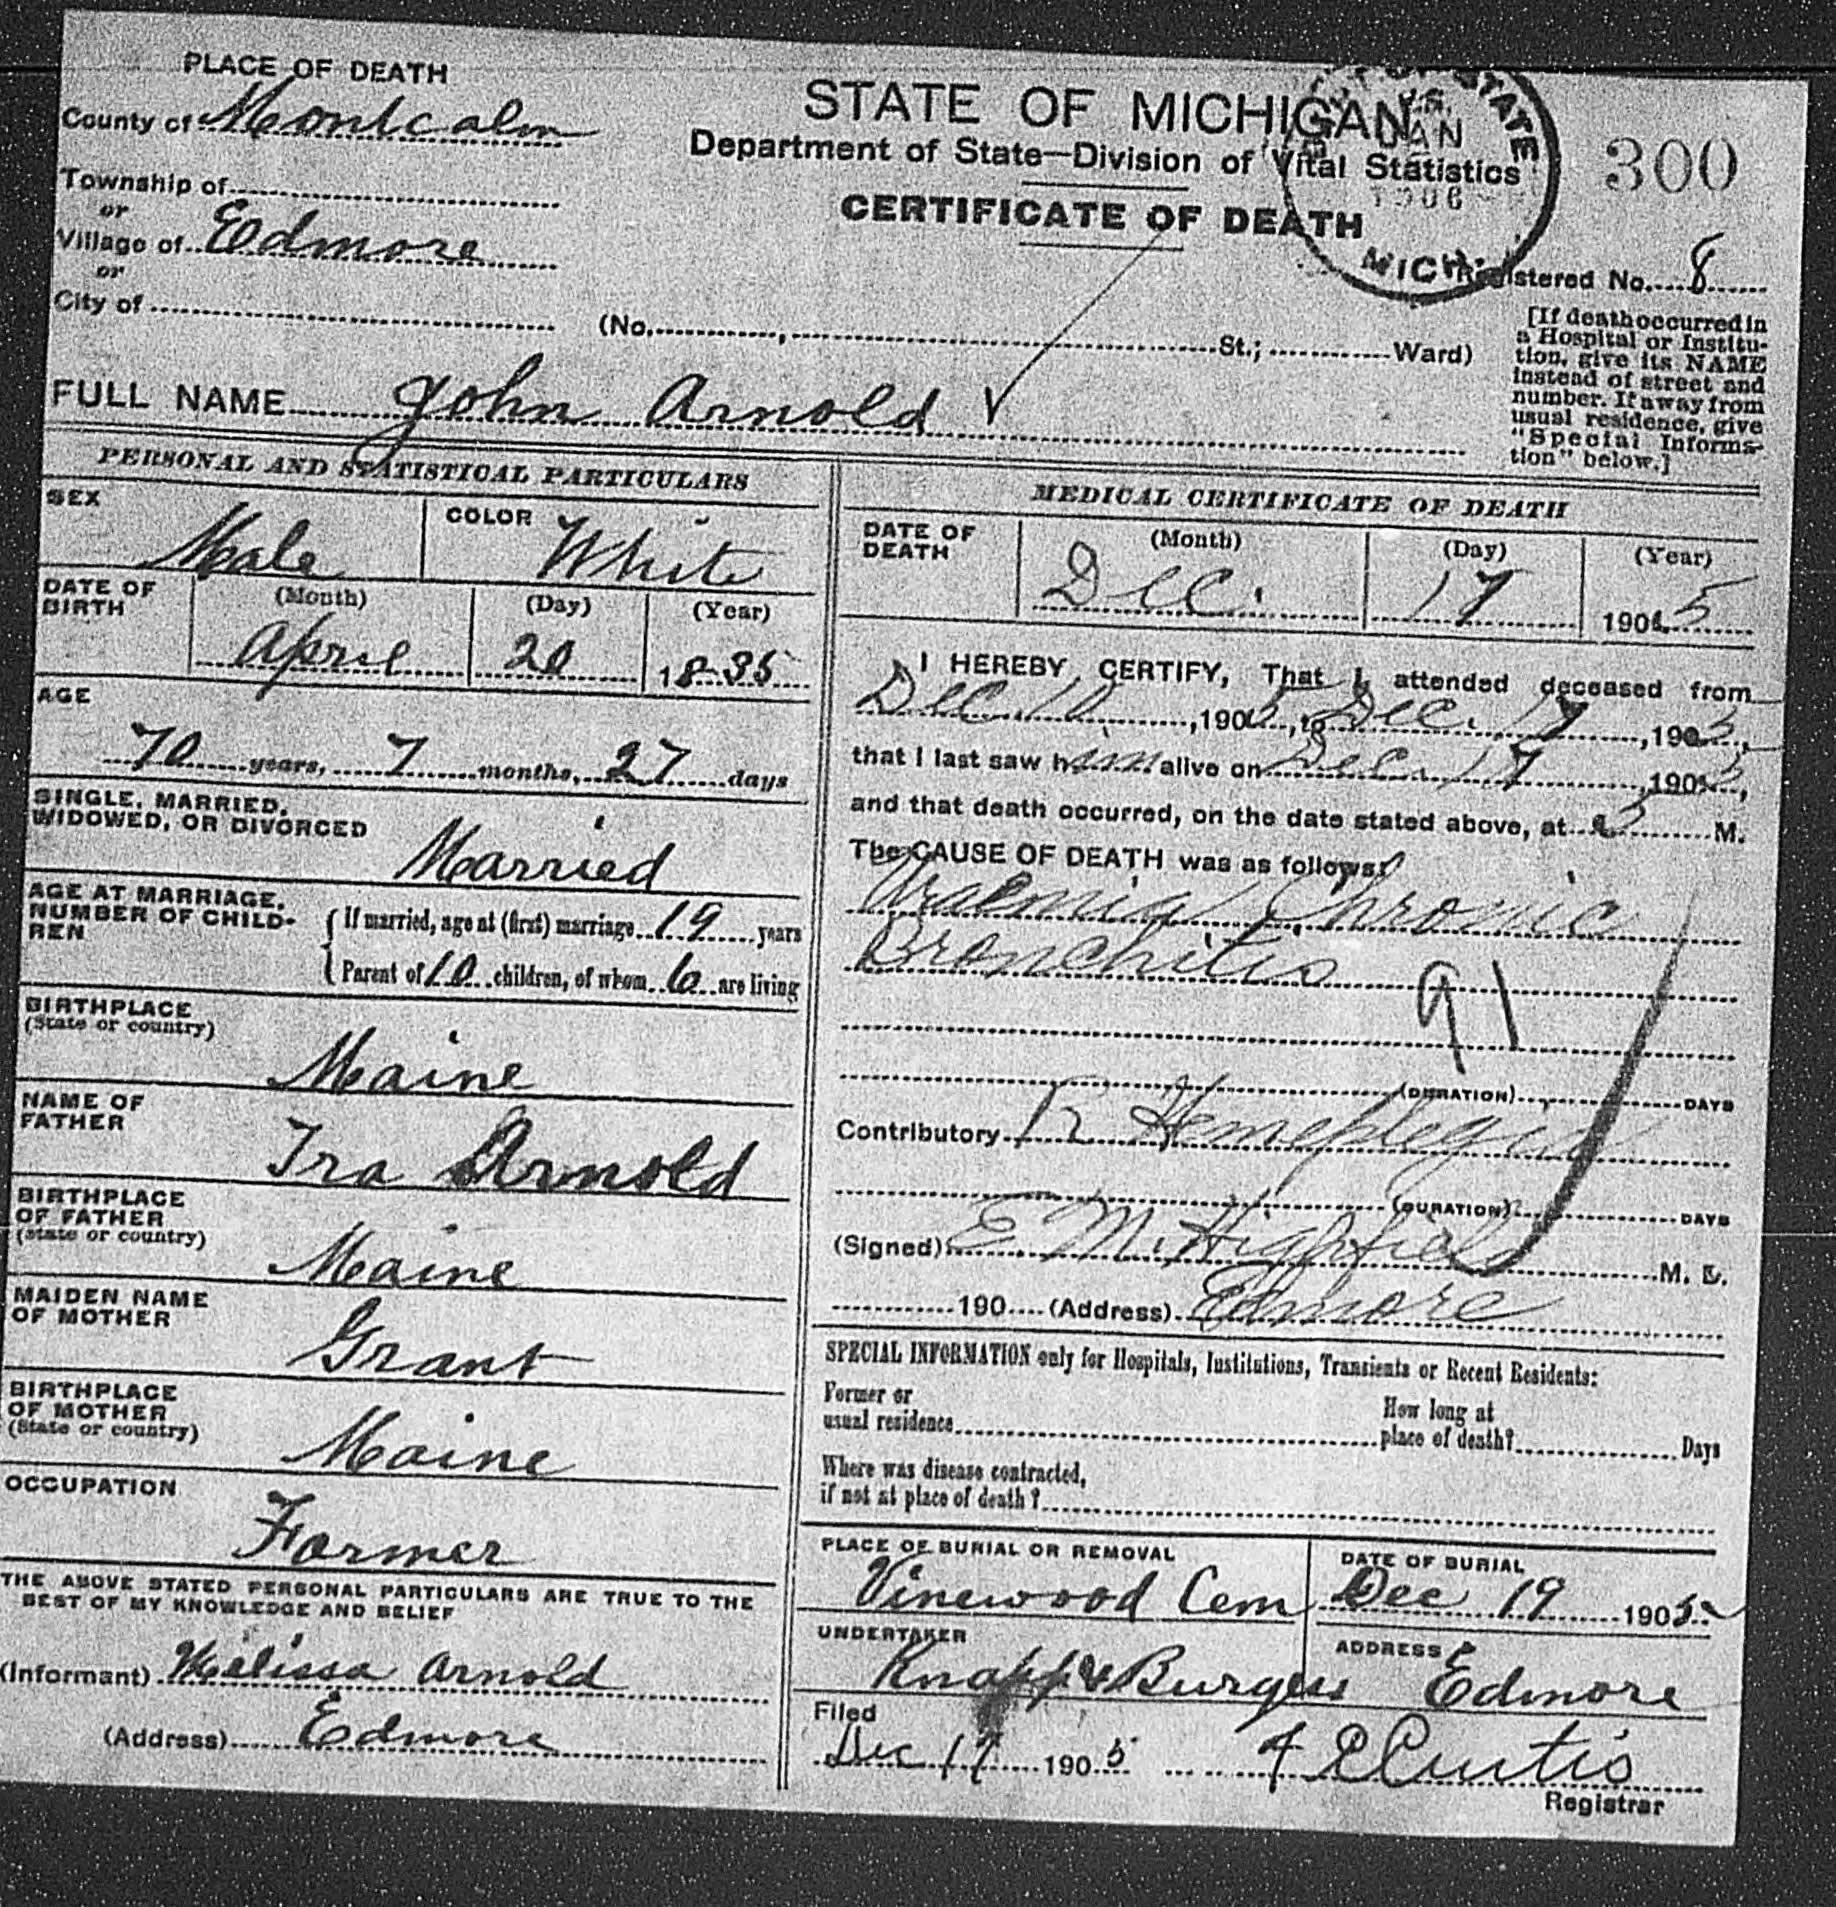 PLACE OF DEATH
County of Montcalm
Township of
or
Village of Edmore
or
City of
STATE OF MICHIGAN
Department of State—Division of Vital Statistics
CERTIFICATE OF DEATH
STATE
JAN
MICH.
300
Registered No. 8
(No. , St.; Ward)
[If death occurred in
a Hospital or Institu-
tion, give its NAME
instead of street and
number. If away from
usual residence, give
"Special Informa-
tion" below.]
FULL NAME John Arnold
PERSONAL AND STATISTICAL PARTICULARS
SEX
Male
COLOR
White
DATE OF
BIRTH
(Month) (Day) (Year)
April 20 1835
AGE
70 years, 7 months, 27 days
SINGLE, MARRIED,
WIDOWED, OR DIVORCED
Married
AGE AT MARRIAGE,
NUMBER OF CHILD-
REN
If married, age at (first) marriage 19 years
Parent of 10 children, of whom 6 are living
BIRTHPLACE
(State or country)
Maine
NAME OF
FATHER
Ira Arnold
BIRTHPLACE
OF FATHER
(State or country)
Maine
MAIDEN NAME
OF MOTHER
Grant
BIRTHPLACE
OF MOTHER
(State or country)
Maine
OCCUPATION
Farmer
THE ABOVE STATED PERSONAL PARTICULARS ARE TRUE TO THE
BEST OF MY KNOWLEDGE AND BELIEF
(Informant) Melissa Arnold
(Address) Edmore
MEDICAL CERTIFICATE OF DEATH
DATE OF
DEATH
(Month) (Day) (Year)
Dec. 17 1905
I HEREBY CERTIFY, That I attended deceased from
Dec 10, 1905, to Dec. 17, 1905,
that I last saw him alive on Dec. 17, 1905,
and that death occurred, on the date stated above, at M.
The CAUSE OF DEATH was as follows:
Uraemia Chronic
Bronchitis
91
(DURATION) DAYS
Contributory R Hemeplegia
(DURATION) DAYS
(Signed) E M. Highfield M. D.
190 (Address) Edmore
SPECIAL INFORMATION only for Hospitals, Institutions, Transients or Recent Residents:
Former or
usual residence
How long at
place of death? Days
Where was disease contracted,
if not at place of death?
PLACE OF BURIAL OR REMOVAL
Vinewood Cem
DATE OF BURIAL
Dec 19 1905
UNDERTAKER
Knapp & Burgess
ADDRESS
Edmore
Filed
Dec 17 1905 F E Curtis
Registrar